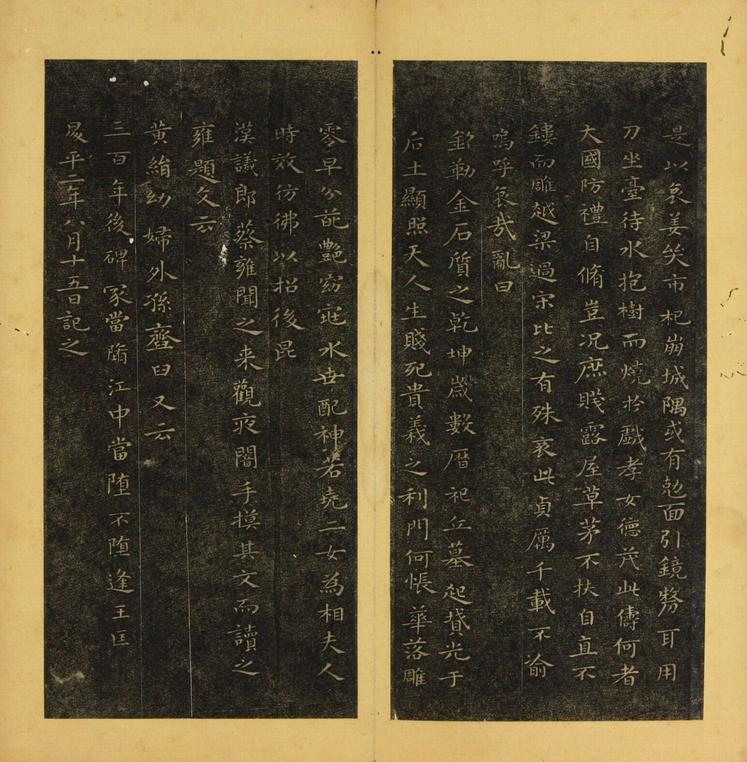 是以哀姜哭市杞崩城隅或有尅面引鏡剺耳用
刀坐臺待水抱樹而燒於戲孝女德茂此儔何者
大國防禮自脩豈况庶賤露屋草茅不扶自直不
鏤而雕越梁過宋比之有殊哀此貞厲千載不渝
嗚呼哀哉亂曰
銘勒金石質之乾坤歲數曆祀丘墓起墳光于
后土顯照天人生賤死貴義之利門何悵華落雕
零早分葩艷窈窕永世配神若堯二女為相夫人
時效彷彿以招後昆
漢議郎蔡雍聞之来觀夜闇手摸其文而讀之
雍題文云
黃絹幼婦外孫齏臼又云
三百年後碑冢當墮江中當墮不墮逢王匡
昇平二年八月十五日記之